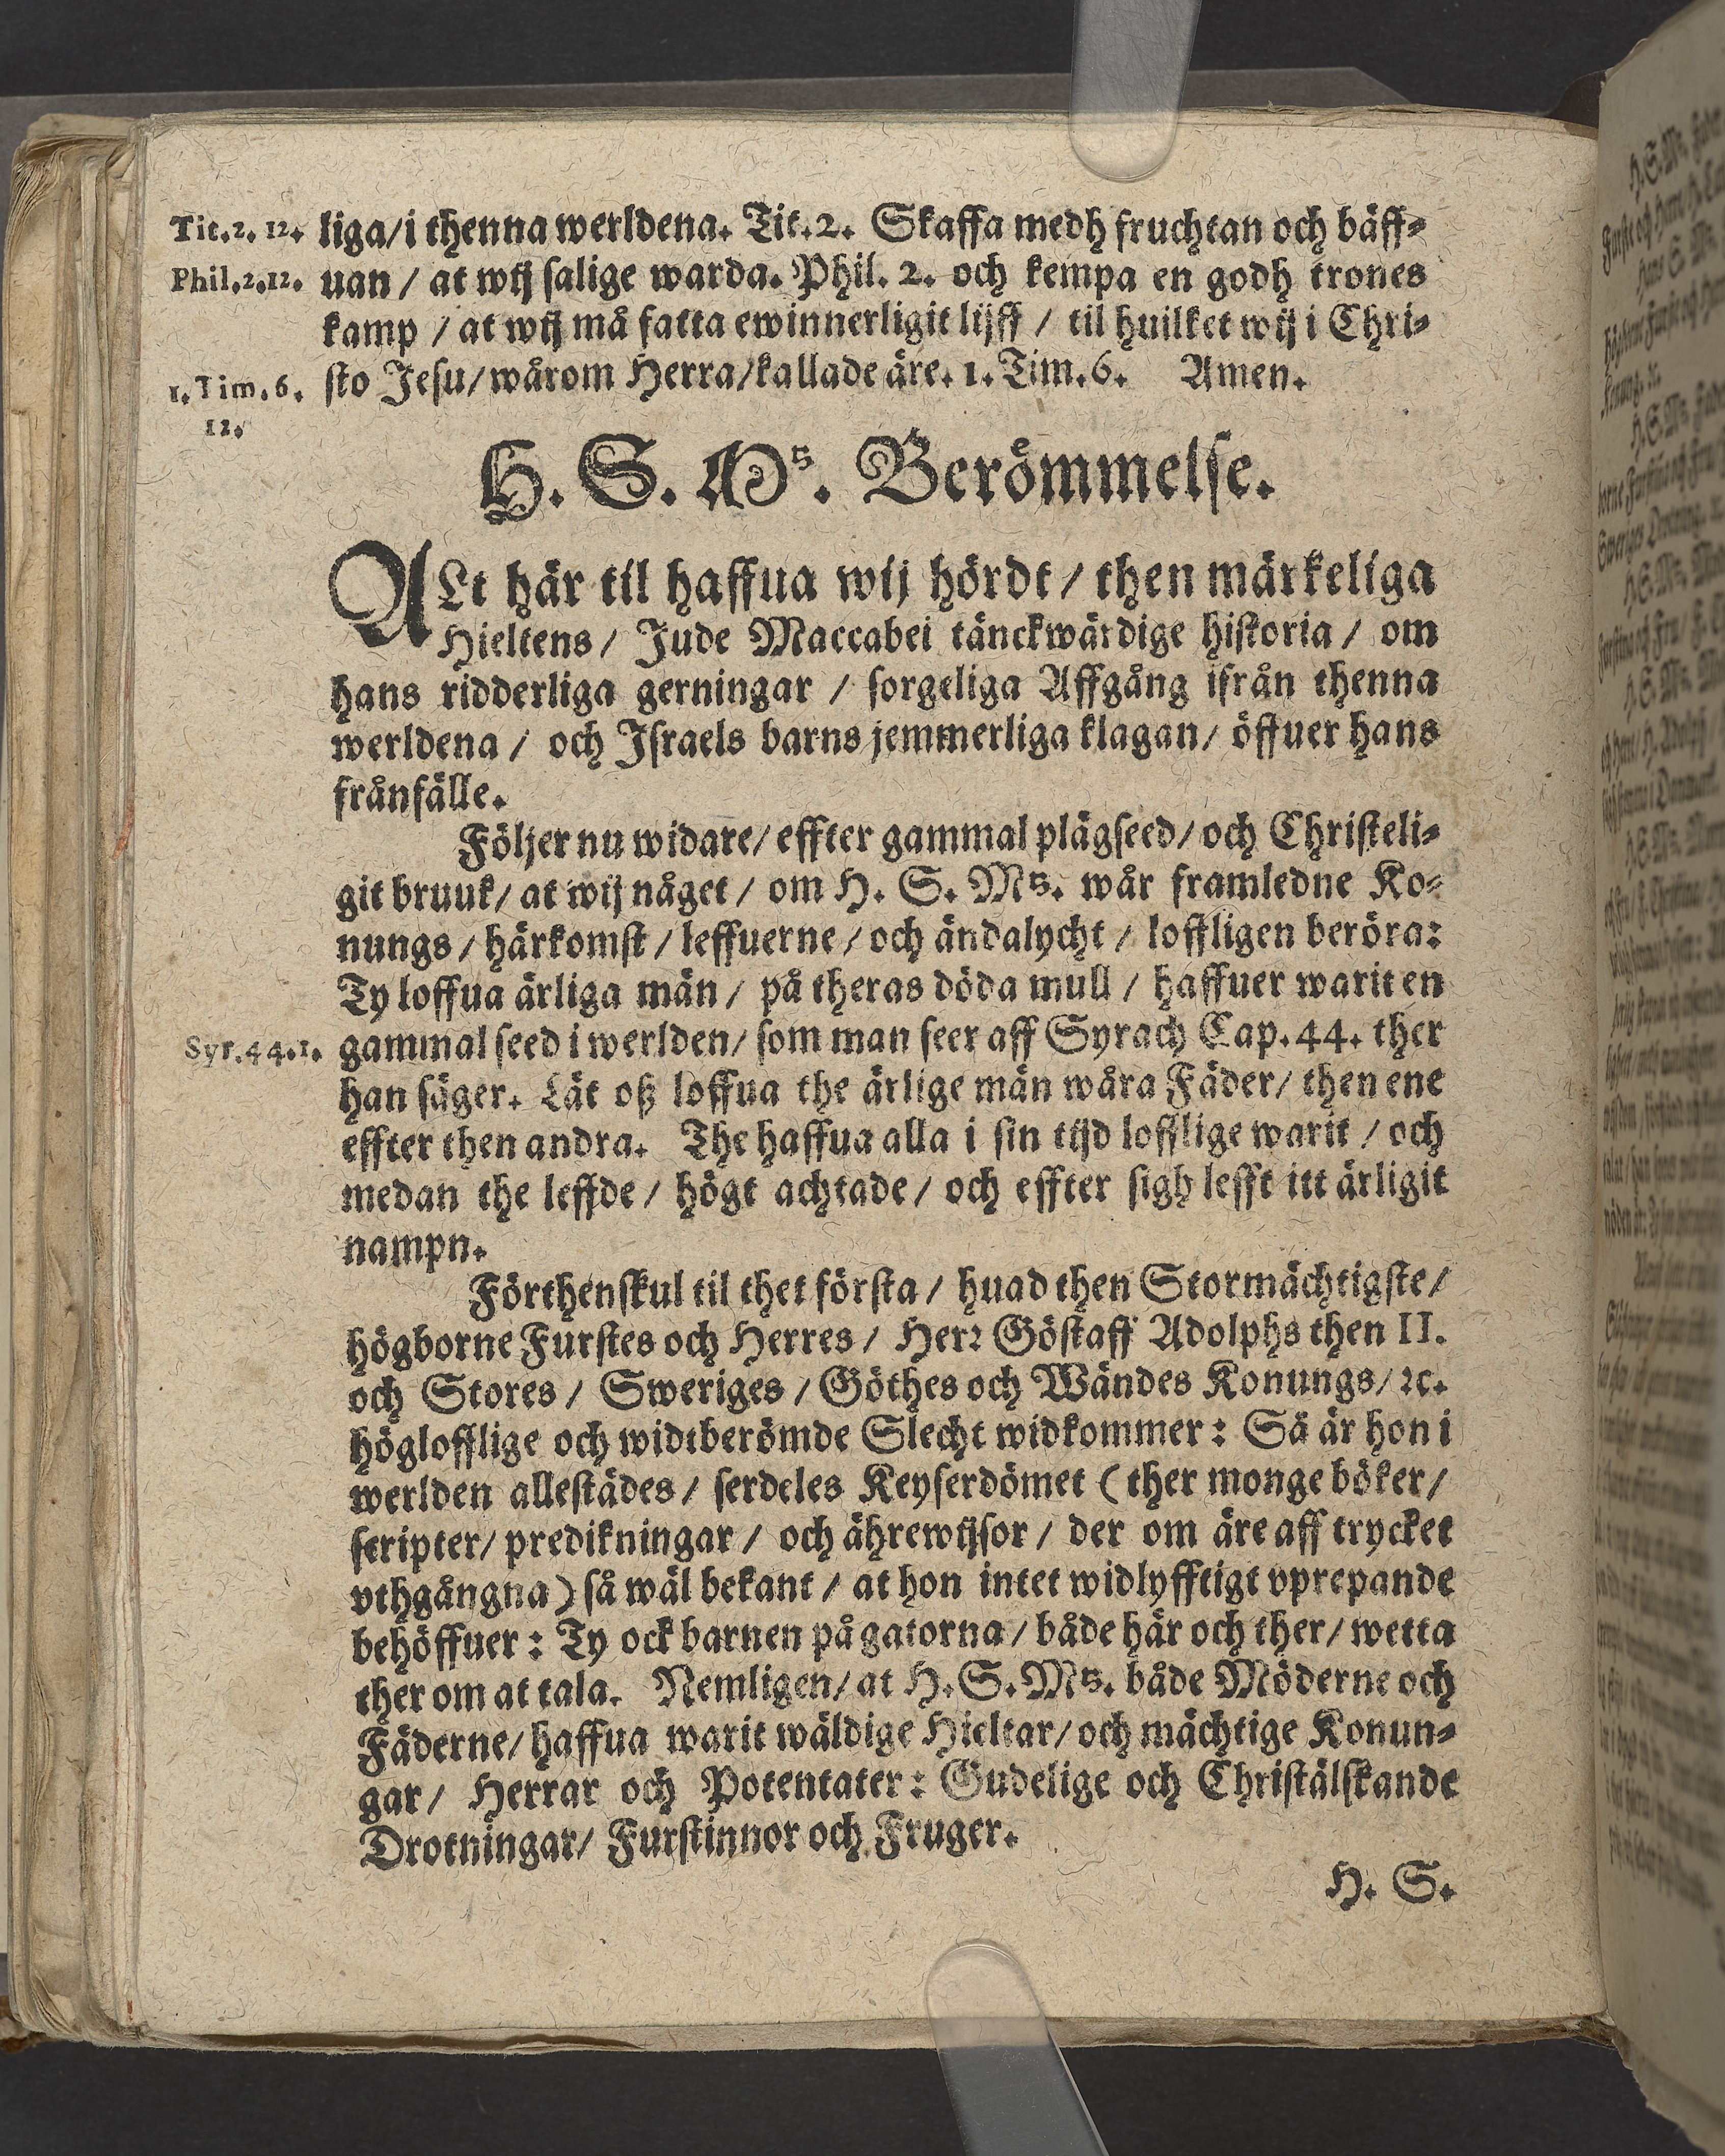 Tit.2. 12. liga/i thenna werldena. Tit.2. Skaffa medh fruchtan och bäff-
Phil.2.12. uan / at wij salige warda. Phil. 2. och kempa en godh trones
kamp / at wij må fatta ewinnerligit lijff / til huilket wij i Chri-
1.Tim.6. sto Jesu/wårom Herra/kallade äre. 1.Tim.6. Amen.
12.
H. S. Mᵗˢ. Berömmelse.
ALt här til haffua wij hördt / then märkeliga
Hieltens / Jude Maccabei tänckwärdige historia / om
hans ridderliga gerningar / sorgeliga Affgång ifrån thenna
werldena / och Israels barns jemmerliga klagan/ öffuer hans
frånfälle.
Följer nu widare/ effter gammal plägseed/ och Christeli-
git bruuk/ at wij någet / om H. S. Mᵗˢ. wår framledne Ko-
nungs / härkomst / leffuerne / och ändalycht / loffligen beröra:
Ty loffua ärliga män / på theras döda mull / haffuer warit en
Syr.44.1. gammal seed i werlden/ som man seer aff Syrach Cap.44. ther
han säger. Lät oß loffua the ärlige män wåra Fäder/ then ene
effter then andra. The haffua alla i sin tijd lofflige warit / och
medan the leffde / högt achtade / och effter sigh lefft itt ärligit
nampn.
Förthenskul til thet första / huad then Stormächtigste/
högborne Furstes och Herres / Herr Göstaff Adolphs then II.
och Stores / Sweriges / Göthes och Wändes Konungs/ ꝛc.
höglofflige och widtberömde Slecht widkommer: Så är hon i
werlden allestädes / serdeles Keyserdömet (ther monge böker/
scripter/ predikningar / och ährewijsor / der om äre aff trycket
vthgångna) så wäl bekant / at hon intet widlyfftigt vprepande
behöffuer: Ty ock barnen på gatorna / både här och ther/ wetta
ther om at tala. Nemligen/ at H.S.Mᵗˢ. både Möderne och
Fäderne/ haffua warit wäldige Hieltar/ och mächtige Konun-
gar/ Herrar och Potentater: Gudelige och Christälskande
Drotningar/ Furstinnor och Fruger.
H. S.